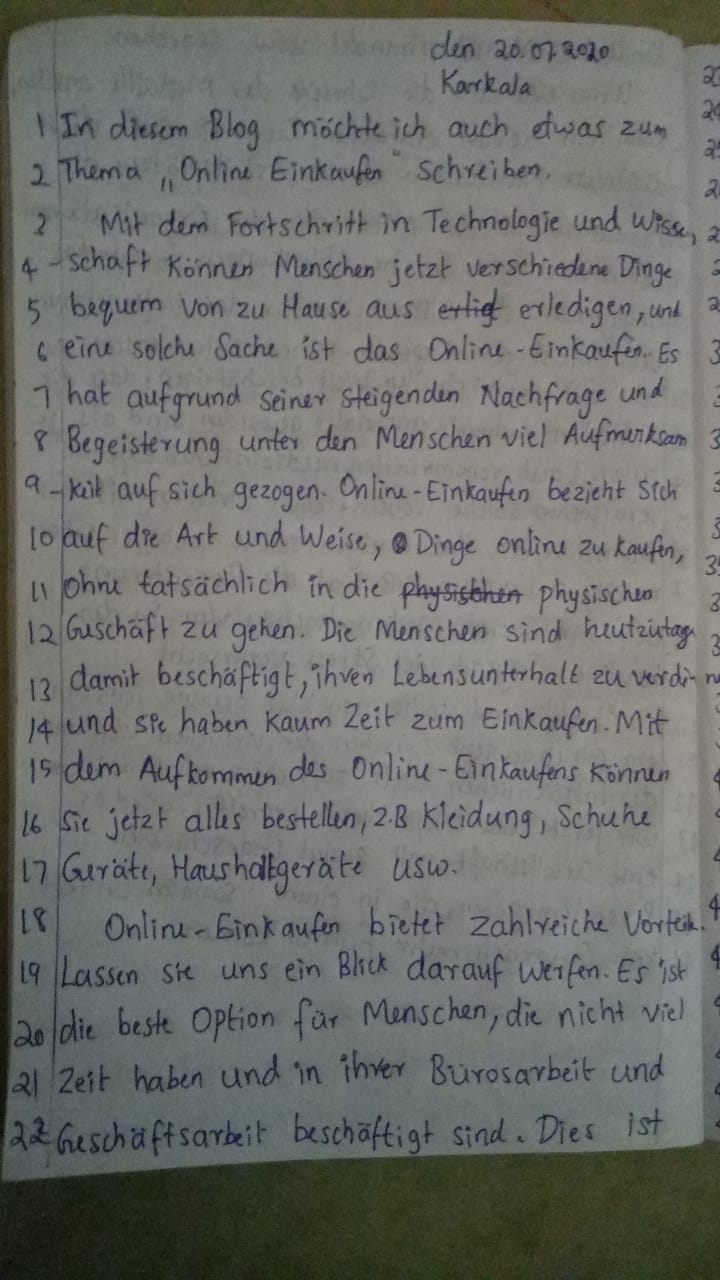 den 20.07.2020
Karkala
1 In diesem Blog möchte ich auch etwas zum
2 Thema „Online Einkaufen“ schreiben.
2 Mit dem Fortschritt in Technologie und Wisse,
4 -schaft können Menschen jetzt verschiedene Dinge
5 bequem von zu Hause aus erledigen, und
6 eine solche Sache ist das Online-Einkaufen. Es
7 hat aufgrund seiner steigenden Nachfrage und
8 Begeisterung unter den Menschen viel Aufmerksam
9 -keit auf sich gezogen. Online-Einkaufen bezieht sich
10 auf die Art und Weise, Dinge online zu kaufen,
11 ohne tatsächlich in die physischen physischen
12 Geschäft zu gehen. Die Menschen sind heutzutag
13 damit beschäftigt, ihren Lebensunterhalt zu verdi-
14 und sie haben kaum Zeit zum Einkaufen. Mit
15 dem Aufkommen des Online-Einkaufens können
16 Sie jetzt alles bestellen, z.B Kleidung, Schuhe
17 Geräte, Haushaltgeräte usw.
18 Online-Einkaufen bietet zahlreiche Vorteile.
19 Lassen sie uns ein Blick darauf werfen. Es ist
20 die beste Option für Menschen, die nicht viel
21 Zeit haben und in ihrer Bürosarbeit und
22 Geschäftsarbeit beschäftigt sind. Dies ist